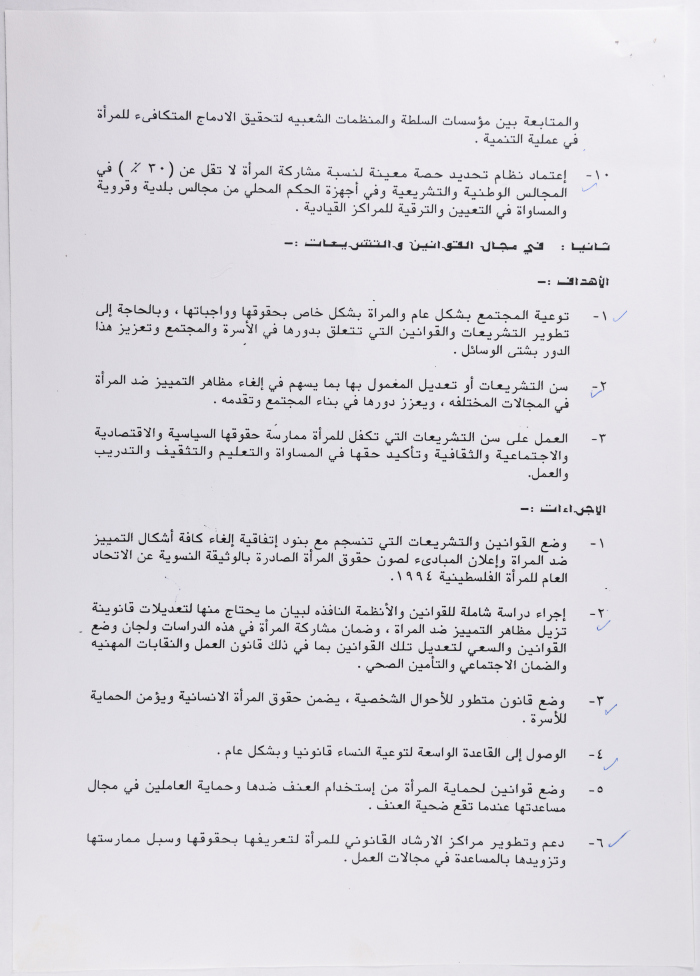 والمتابعة بين مؤسسات السلطة والمنظمات الشعبيه لتحقيق الادماج المتكافىء للمرأة
في عملية التنمية .
١٠- إعتماد نظام تحديد حصة معينة لنسبة مشاركة المرأة لا تقل عن ( ٣٠ ٪ ) في
المجالس الوطنية والتشريعية وفي أجهزة الحكم المحلي من مجالس بلدية وقروية
والمساواة في التعيين والترقية للمراكز القيادية .
ثانيا : في مجال القوانين والتشريعات :-
الأهداف :-
١- توعية المجتمع بشكل عام والمراة بشكل خاص بحقوقها وواجباتها ، وبالحاجة إلى
تطوير التشريعات والقوانين التي تتعلق بدورها في الأسرة والمجتمع وتعزيز هذا
الدور بشتى الوسائل .
٢- سن التشريعات أو تعديل المعمول بها بما يسهم في إلغاء مظاهر التمييز ضد المرأة
في المجالات المختلفه ، ويعزز دورها في بناء المجتمع وتقدمه .
٣- العمل على سن التشريعات التي تكفل للمرأة ممارسة حقوقها السياسية والاقتصادية
والاجتماعية والثقافية وتأكيد حقها في المساواة والتعليم والتثقيف والتدريب
والعمل.
الإجراءات :-
١- وضع القوانين والتشريعات التي تنسجم مع بنود إتفاقية إلغاء كافة أشكال التمييز
ضد المراة وإعلان المبادىء لصون حقوق المرأة الصادرة بالوثيقة النسوية عن الاتحاد
العام للمرأة الفلسطينية ١٩٩٤.
٢- إجراء دراسة شاملة للقوانين والأنظمة النافذه لبيان ما يحتاج منها لتعديلات قانوينة
تزيل مظاهر التمييز ضد المراة ، وضمان مشاركة المرأة في هذه الدراسات ولجان وضع
القوانين والسعي لتعديل تلك القوانين بما في ذلك قانون العمل والنقابات المهنيه
والضمان الاجتماعي والتأمين الصحي .
٣- وضع قانون متطور للأحوال الشخصية ، يضمن حقوق المرأة الانسانية ويؤمن الحماية
للأسرة .
٤- الوصول إلى القاعدة الواسعة لتوعية النساء قانونيا وبشكل عام .
٥- وضع قوانين لحماية المرأة من إستخدام العنف ضدها وحماية العاملين في مجال
مساعدتها عندما تقع ضحية العنف .
٦- دعم وتطوير مراكز الارشاد القانوني للمرأة لتعريفها بحقوقها وسبل ممارستها
وتزويدها بالمساعدة في مجالات العمل .